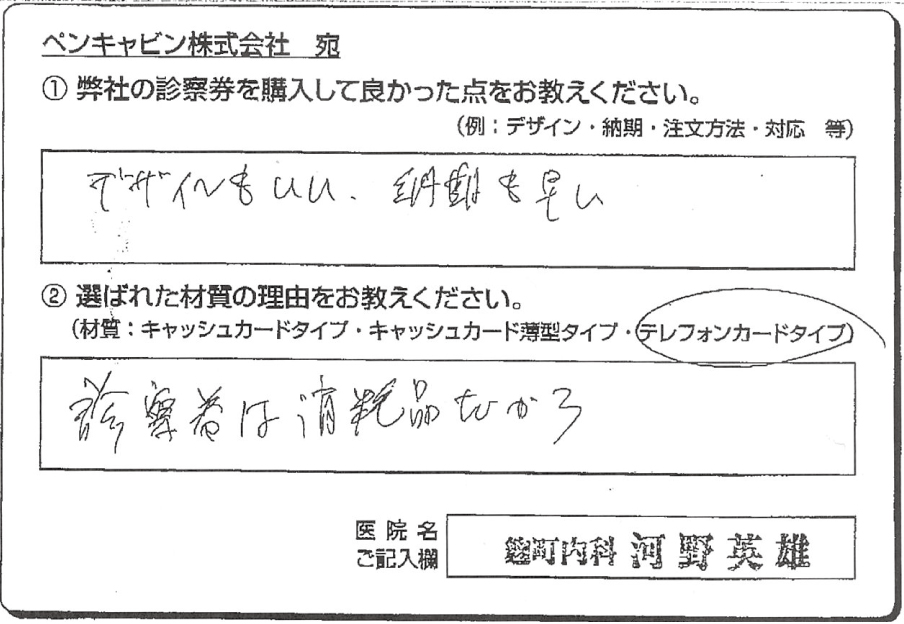 ペンキャビン株式会社 宛
① 弊社の診察券を購入して良かった点をお教えください。
(例:デザイン・納期・注文方法・対応 等)
デザインもいい、納期も早い
② 選ばれた材質の理由をお教えください。
(材質:キャッシュカードタイプ・キャッシュカード薄型タイプ・テレフォンカードタイプ)
診察券は消耗品だから
医院名
ご記入欄
麹町内科 河野英雄